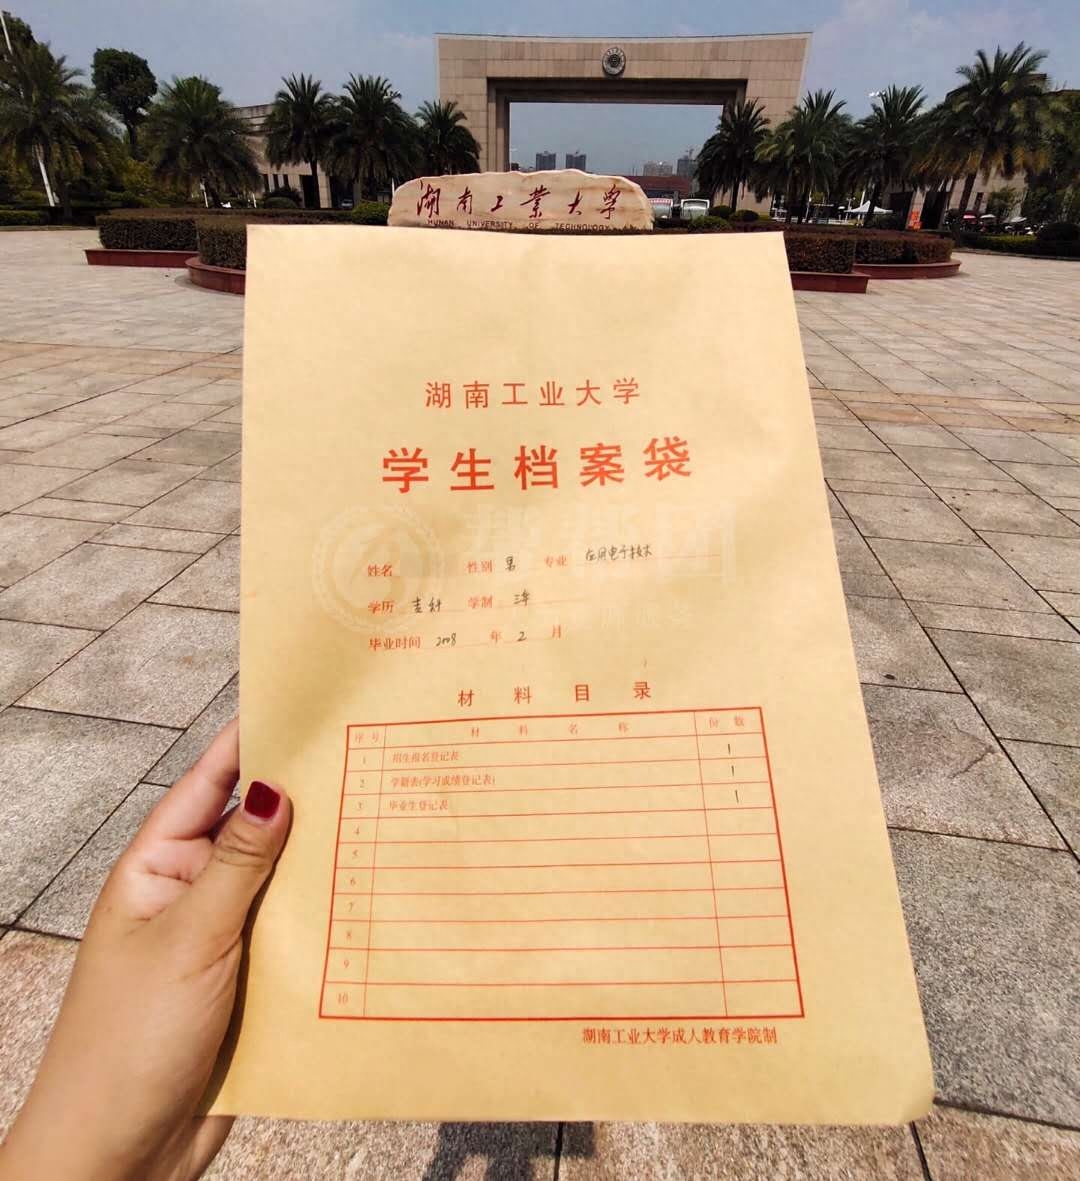 湖南工業大学
HUNAN UNIVERSITY OF TECHNOLOGY
湖南工业大学
学生档案袋
姓名 性别 男 专业 应用电子技术
学历 专科 学制 三年
毕业时间 2008 年 2 月
材料目录
序号 材料名称 份数
1 招生报名登记表 1
2 学籍表(学习成绩登记表) 1
3 毕业生登记表 1
4
5
6
7
8
9
10
湖南工业大学成人教育学院制